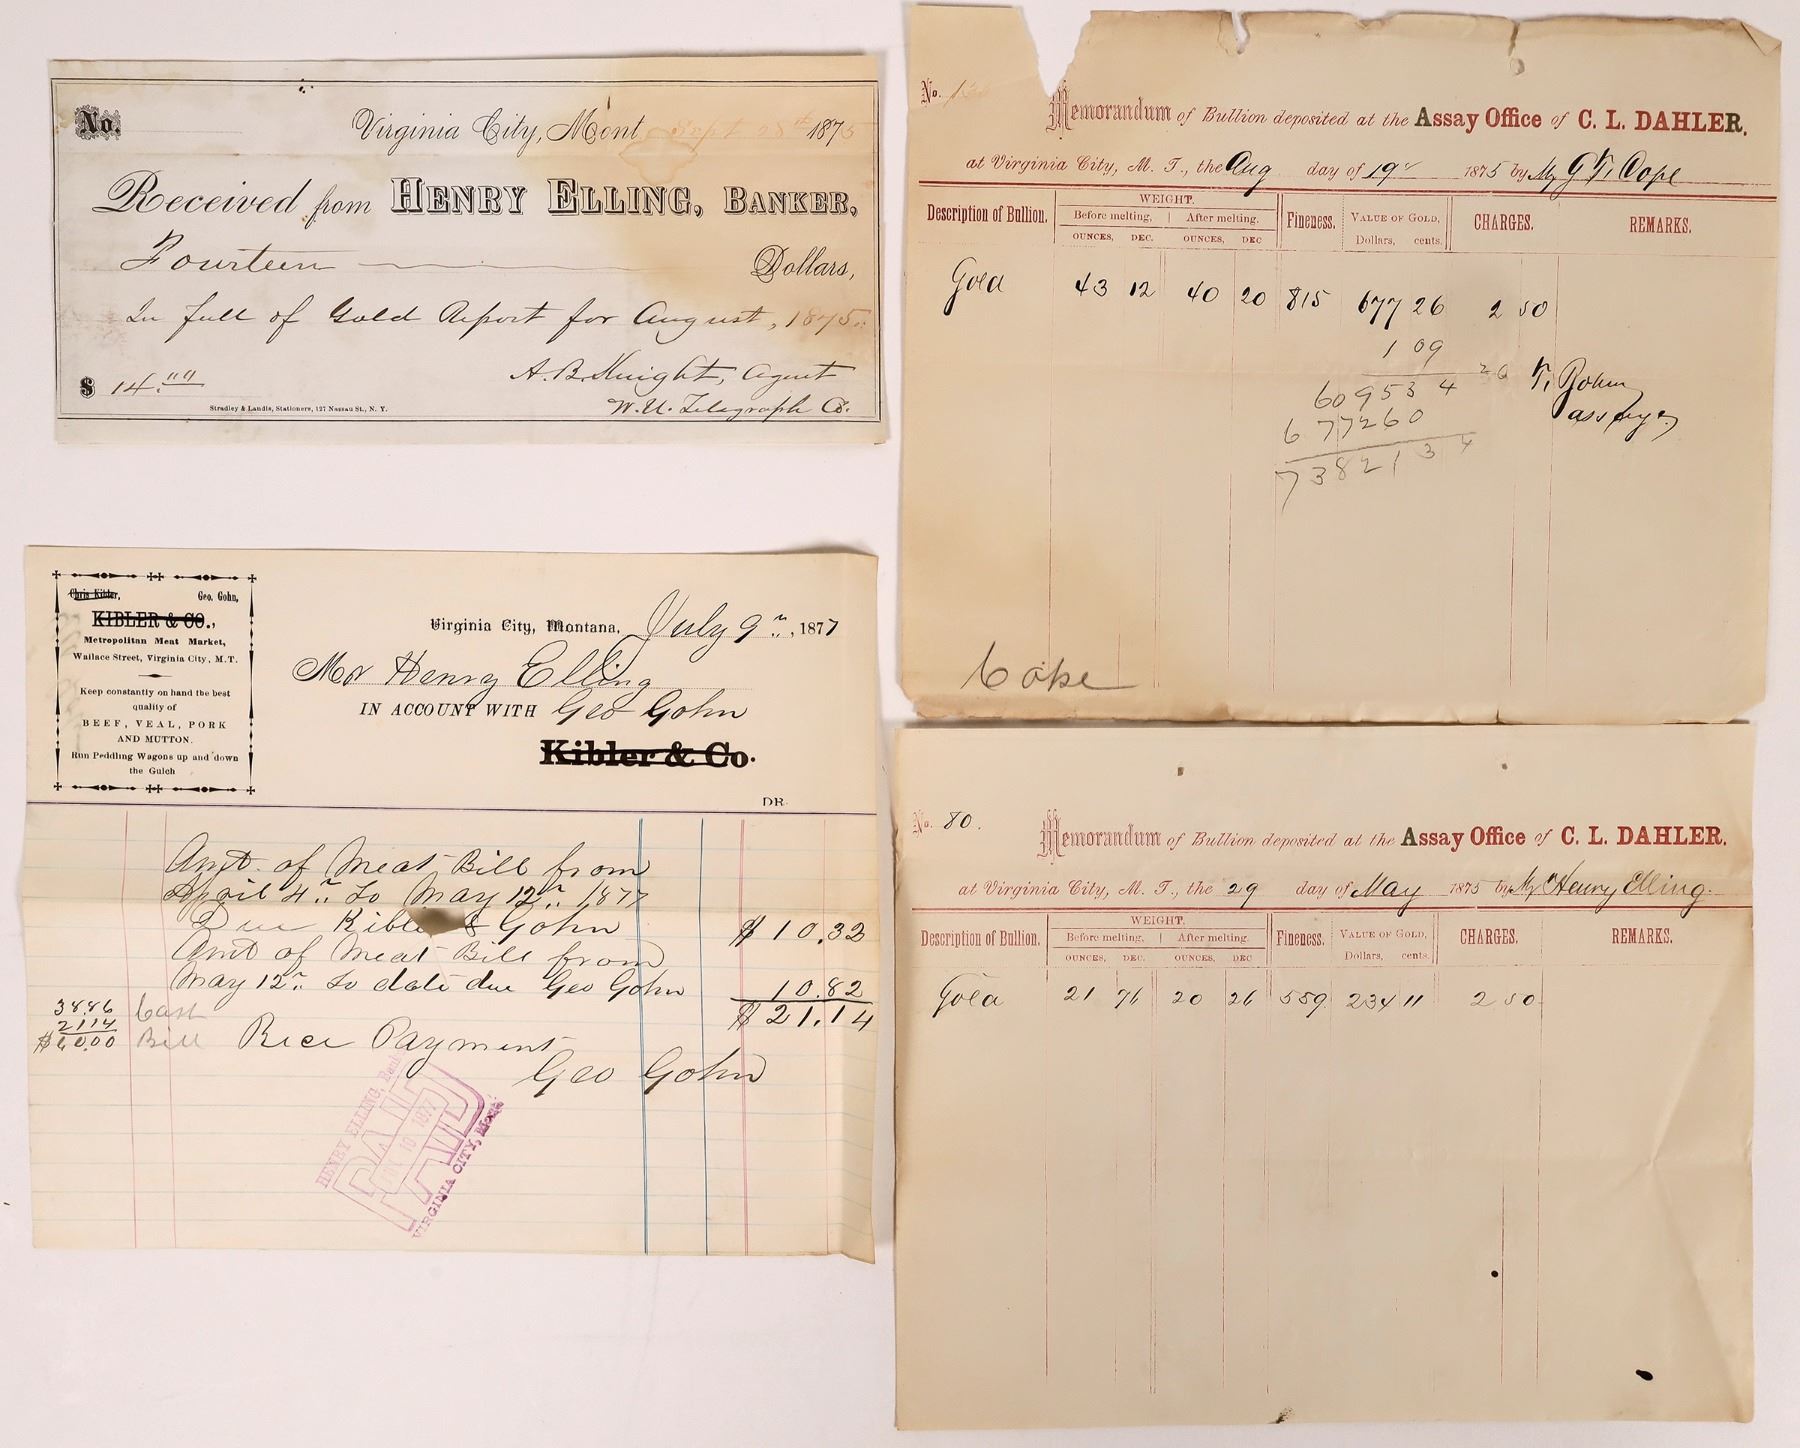 No.
Virginia City, Mont Sept 28th 1875
Received from HENRY ELLING, BANKER,
Fourteen Dollars,
In full of Gold Report for August, 1875.
$ 14.00
A. B. Knight, Agent
W. U. Telegraph Co.
Stradley & Landis, Stationers, 127 Nassau St., N. Y.
No.
Memorandum of Bullion deposited at the Assay Office of C. L. DAHLER,
at Virginia City, M. T., the Aug day of 19" 1875 by Mr G T. Cope
Description of Bullion. WEIGHT. Fineness. VALUE OF GOLD, CHARGES. REMARKS.
Before melting, After melting,
OUNCES, DEC. OUNCES, DEC Dollars, cents.
Gold 43 12 40 20 815 677 26 2 50
1 09
609534 26
677260
7382134
assayer
Cope
Chris Kibler, Geo. Gohn,
KIBLER & CO.,
Metropolitan Meat Market,
Wallace Street, Virginia City, M.T.
Keep constantly on hand the best
quality of
BEEF, VEAL, PORK
AND MUTTON.
Run Peddling Wagons up and down
the Gulch
Virginia City, Montana, July 9", 1877
Mr Henry Elling
IN ACCOUNT WITH Geo Gohn
Kibler & Co.
DR.
Amt. of Meat Bill from
April 4" to May 12" 1877
Due Kibler & Gohn $10.32
Amt of Meat Bill from
May 12" to date due Geo Gohn 10.82
$21.14
38.86 Cash
21.14 Bill
$60.00
Rec Payment
Geo Gohn
HENRY ELLING, Bank
PAID
10 1877
VIRGINIA CITY, Mont.
No. 80.
Memorandum of Bullion deposited at the Assay Office of C. L. DAHLER,
at Virginia City, M. T., the 29 day of May 1875 by Mr Henry Elling.
Description of Bullion. WEIGHT. Fineness. VALUE OF GOLD, CHARGES. REMARKS.
Before melting, After melting.
OUNCES, DEC. OUNCES, DEC Dollars, cents.
Gold 21 76 20 26 559 234 11 2 50